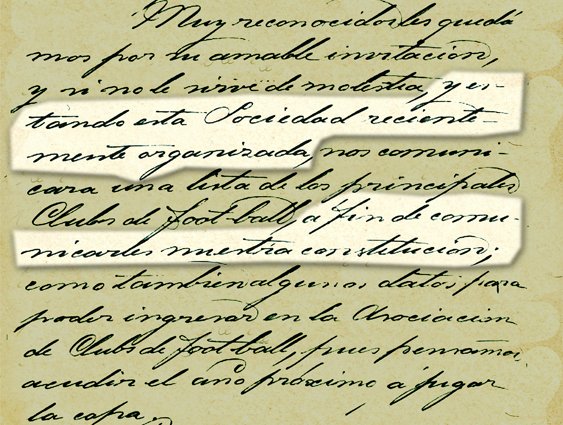 Muy reconocidos les quedá
mos por su amable invitación,
y si no le sirve de molestia, y es-
tando esta Sociedad reciente-
mente organizada, nos comuni-
cara una lista de los principales
Clubs de foot-ball, a fin de comu-
nicarles nuestra constitución;
como tambien algunos datos para
poder ingresar en la Asociacion
de Clubs de foot-ball, pues pensamos
acudir el año próximo á jugar
la copa.